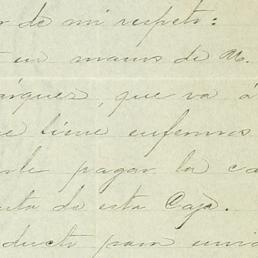 r de mi respeto:
en manos de M.
árquez, que va á
e tiene enfermos
rle pagar la ca
nta de esta Caja.
ducto para envia